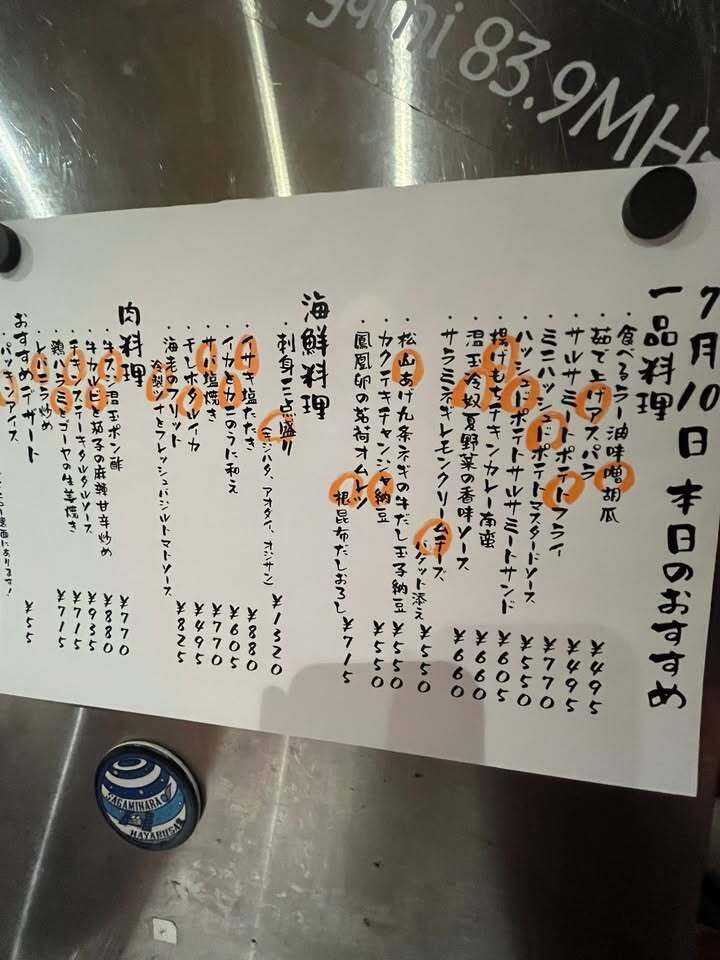 gami 83.9MHz
7月10日 本日のおすすめ
一品料理
・食べるラー油味噌胡瓜 ¥495
・茹で上げアスパラ ¥495
・サルサミートポテトフライ ¥770
・ミニハッシュドポテトマスタードソース ¥550
・ハッシュドポテトサルサミートサンド ¥605
・揚げもちチキンカレー南蛮 ¥660
・温玉冷奴夏野菜の香味ソース ¥660
・サラミネギレモンクリームチーズ
バケット添え ¥550
・松山あげ九条ネギの牛だし玉子納豆 ¥550
・カクテキチャンジャ納豆 ¥550
・鳳凰卵の茗荷オムレツ
根昆布だしおろし ¥715
海鮮料理
・刺身三点盛り
(キジハタ、アオダイ、オジサン) ¥1320
・イサキ塩たたき ¥880
・イカとカニのうに和え ¥605
・サバ塩焼き ¥770
・干しホタルイカ ¥495
・海老のフリット
冷製ツナとフレッシュバジルトマトソース ¥825
肉料理
・牛スジ温玉ポン酢 ¥770
・牛カルビと茄子の麻辣甘辛炒め ¥880
・チキンステーキタルタルソース ¥935
・鶏ハラミとゴーヤの生姜焼き ¥715
・レバニラ炒め ¥715
おすすめデザート
・パッキンアイス ¥55
SAGAMIHARA
HAYABUSA2